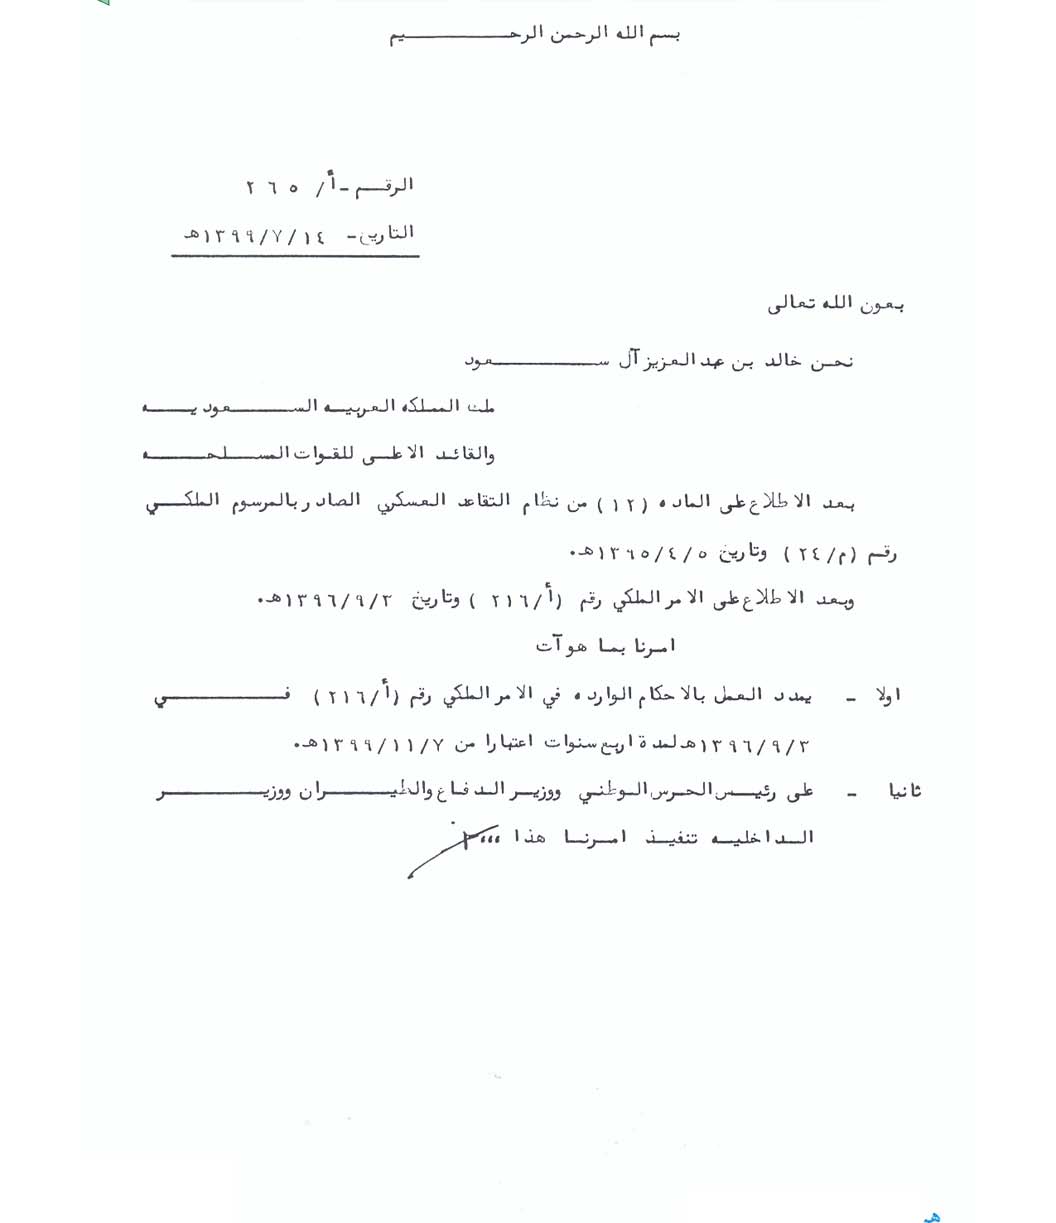 بسم الله الرحمن الرحيم
الرقم - أ/ ٢٦٥
التاريخ - ١٣٩٩/٧/١٤هـ
بعون الله تعالى
نحن خالد بن عبد العزيز آل سعود
ملك المملكه العربيه السعوديه
والقائد الاعلى للقوات المسلحه
بعد الاطلاع على الماده (١٢) من نظام التقاعد العسكري الصادر بالمرسوم الملكي
رقم (م/٢٤) وتاريخ ١٣٦٥/٤/٥هـ.
وبعد الاطلاع على الامر الملكي رقم (أ/٢١٦) وتاريخ ١٣٩٦/٩/٢هـ.
امرنا بما هو آت
اولا - يمدد العمل بالاحكام الوارده في الامر الملكي رقم (أ/٢١٦) في
١٣٩٦/٩/٢هـ لمدة اربع سنوات اعتبارا من ١٣٩٩/١١/٧هـ.
ثانيا - على رئيس الحرس الوطني ووزير الدفاع والطيران ووزير
الداخليه تنفيذ امرنا هذا ،،،
هـ